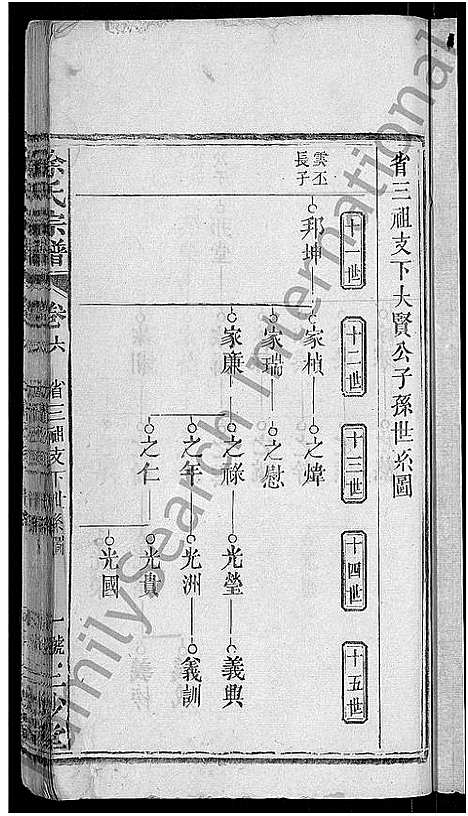 省三祖支下大賢公子孫世系圖
十一世
十二世
十三世
十四世
十五世
雲丕
長子
邦坤
家楨
之煒
家瑞
之慰
家廉
之祿
光瑩
義興
之年
光洲
義訓
之仁
光貴
光國
徐氏宗譜
卷六
省三祖支下世系圖
一號
FamilySearch International